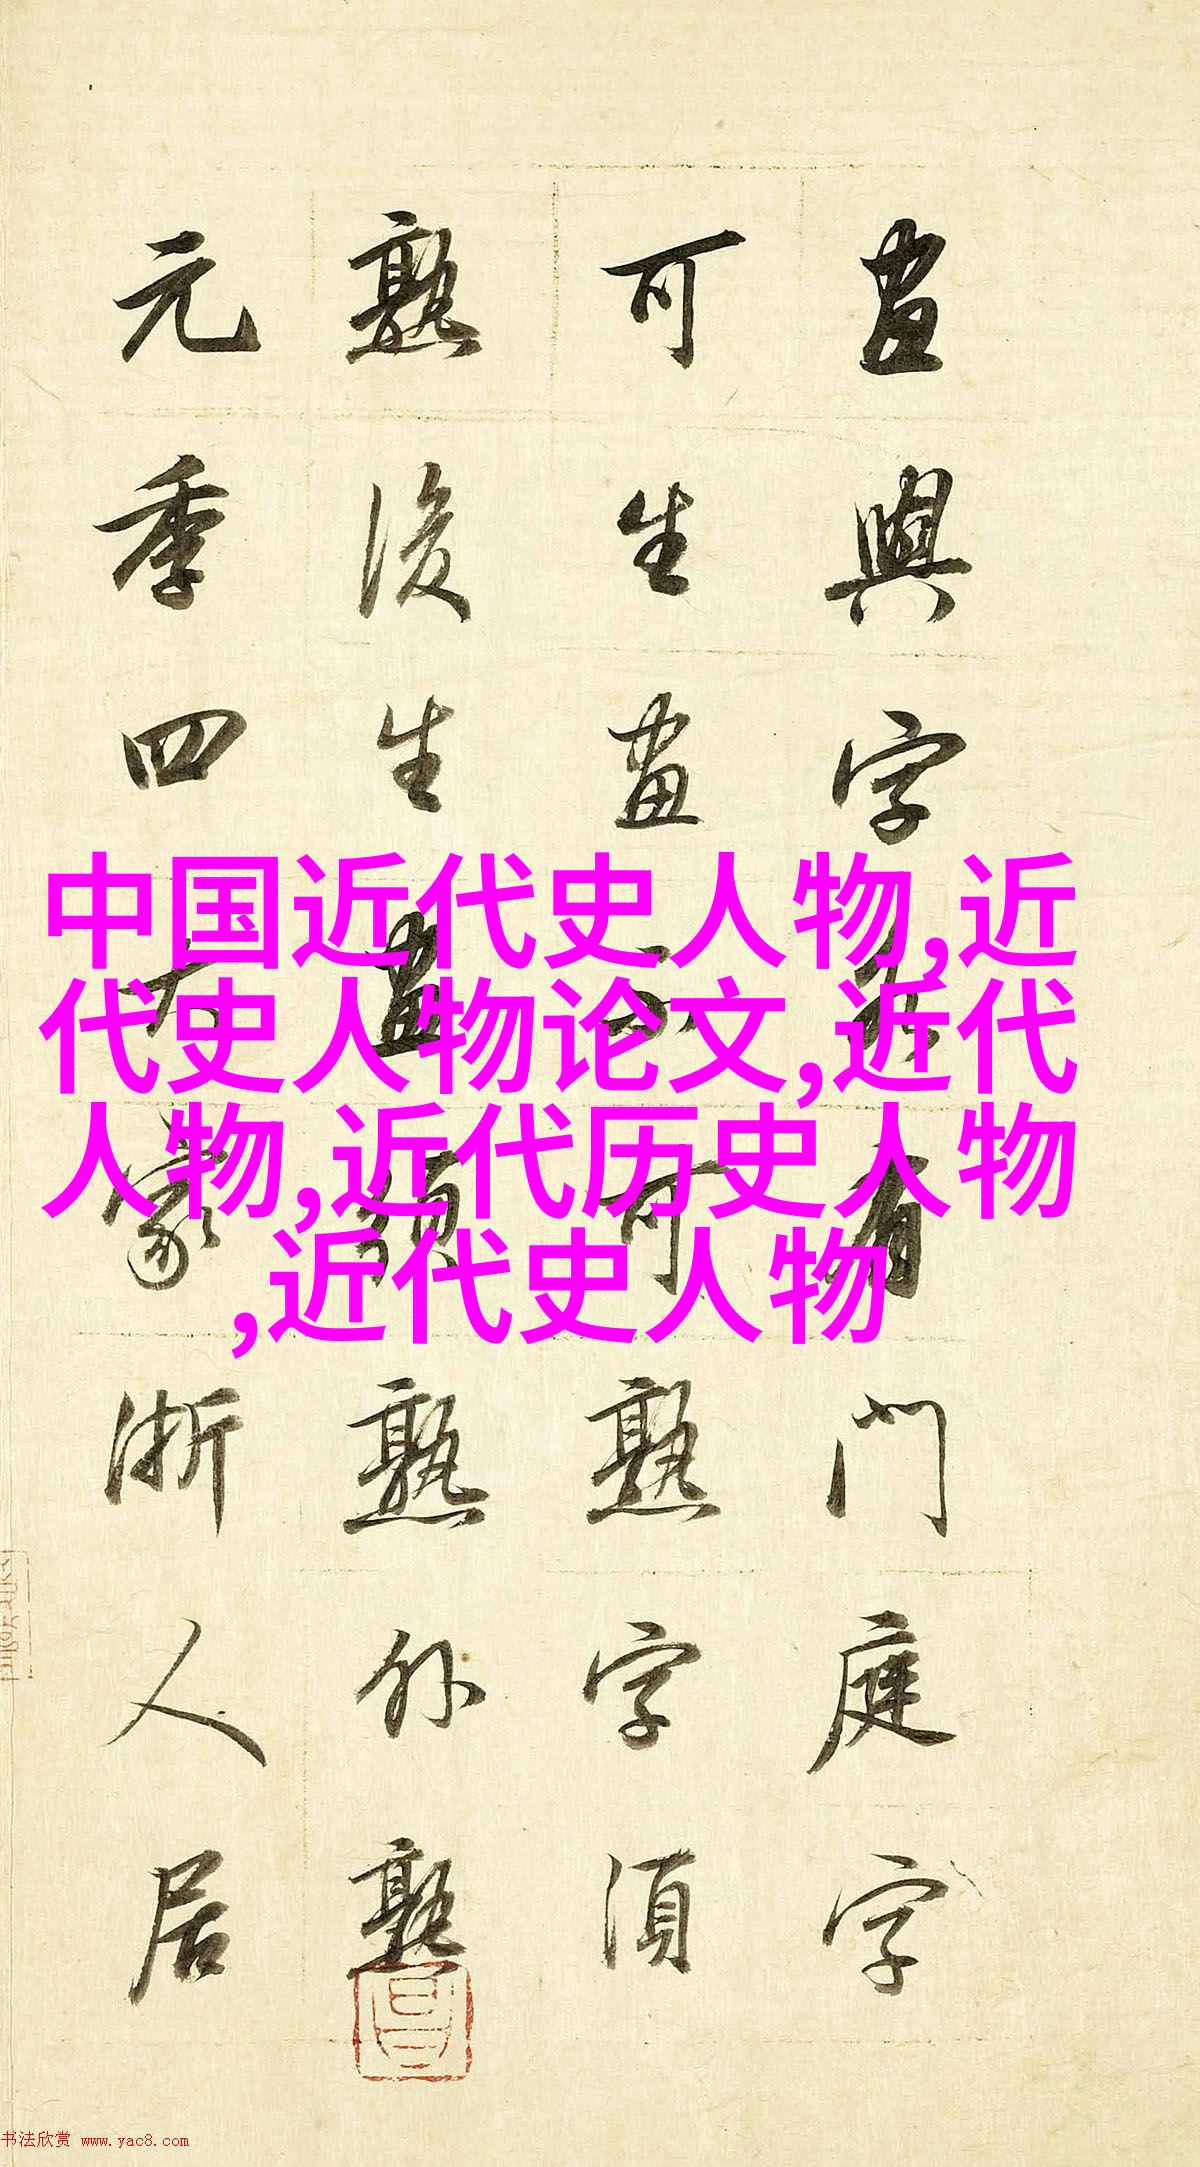 畫與字各有門庭字
可生畫不可熟字須
熟後生畫須熟外熟
元季四大家浙人居
中国近代史人物,近
代史人物论文,近代
人物,近代历史人物
,近代史人物
书法欣赏 www.yac8.com